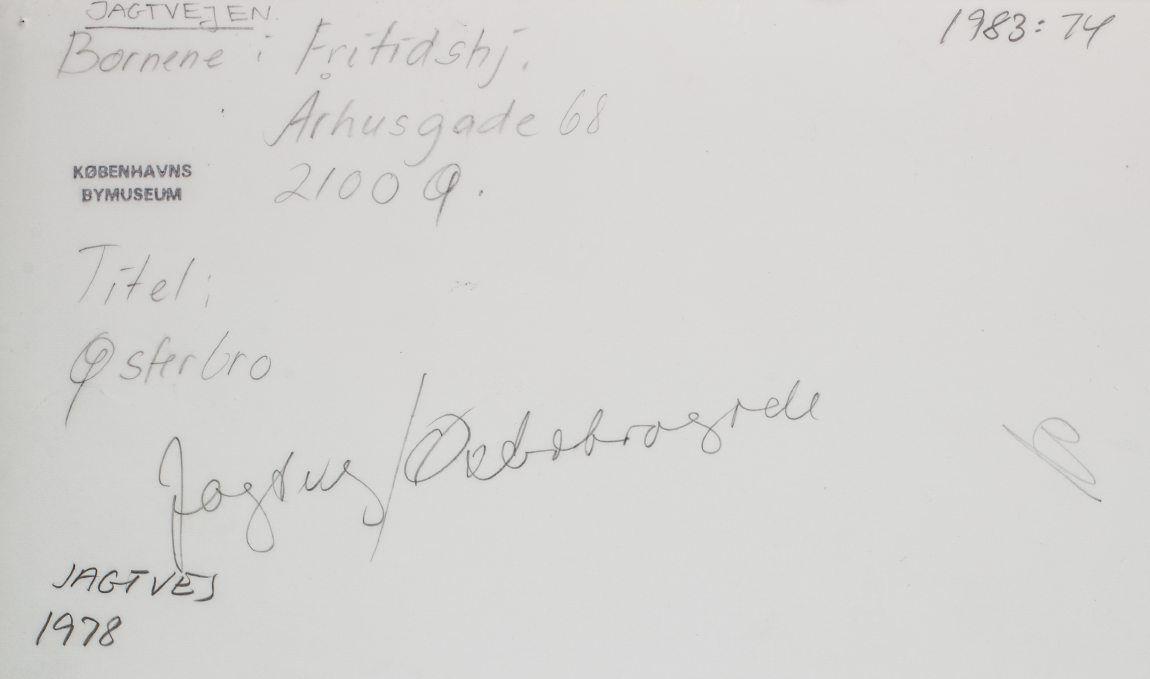 JAGTVEJEN.
1983:74
Børnene i Fritidshj.
Århusgade 68
2100 Ø.
KØBENHAVNS
BYMUSEUM
Titel:
Østerbro
Jagtvej/Østerbrogade
JAGTVEJ
1978